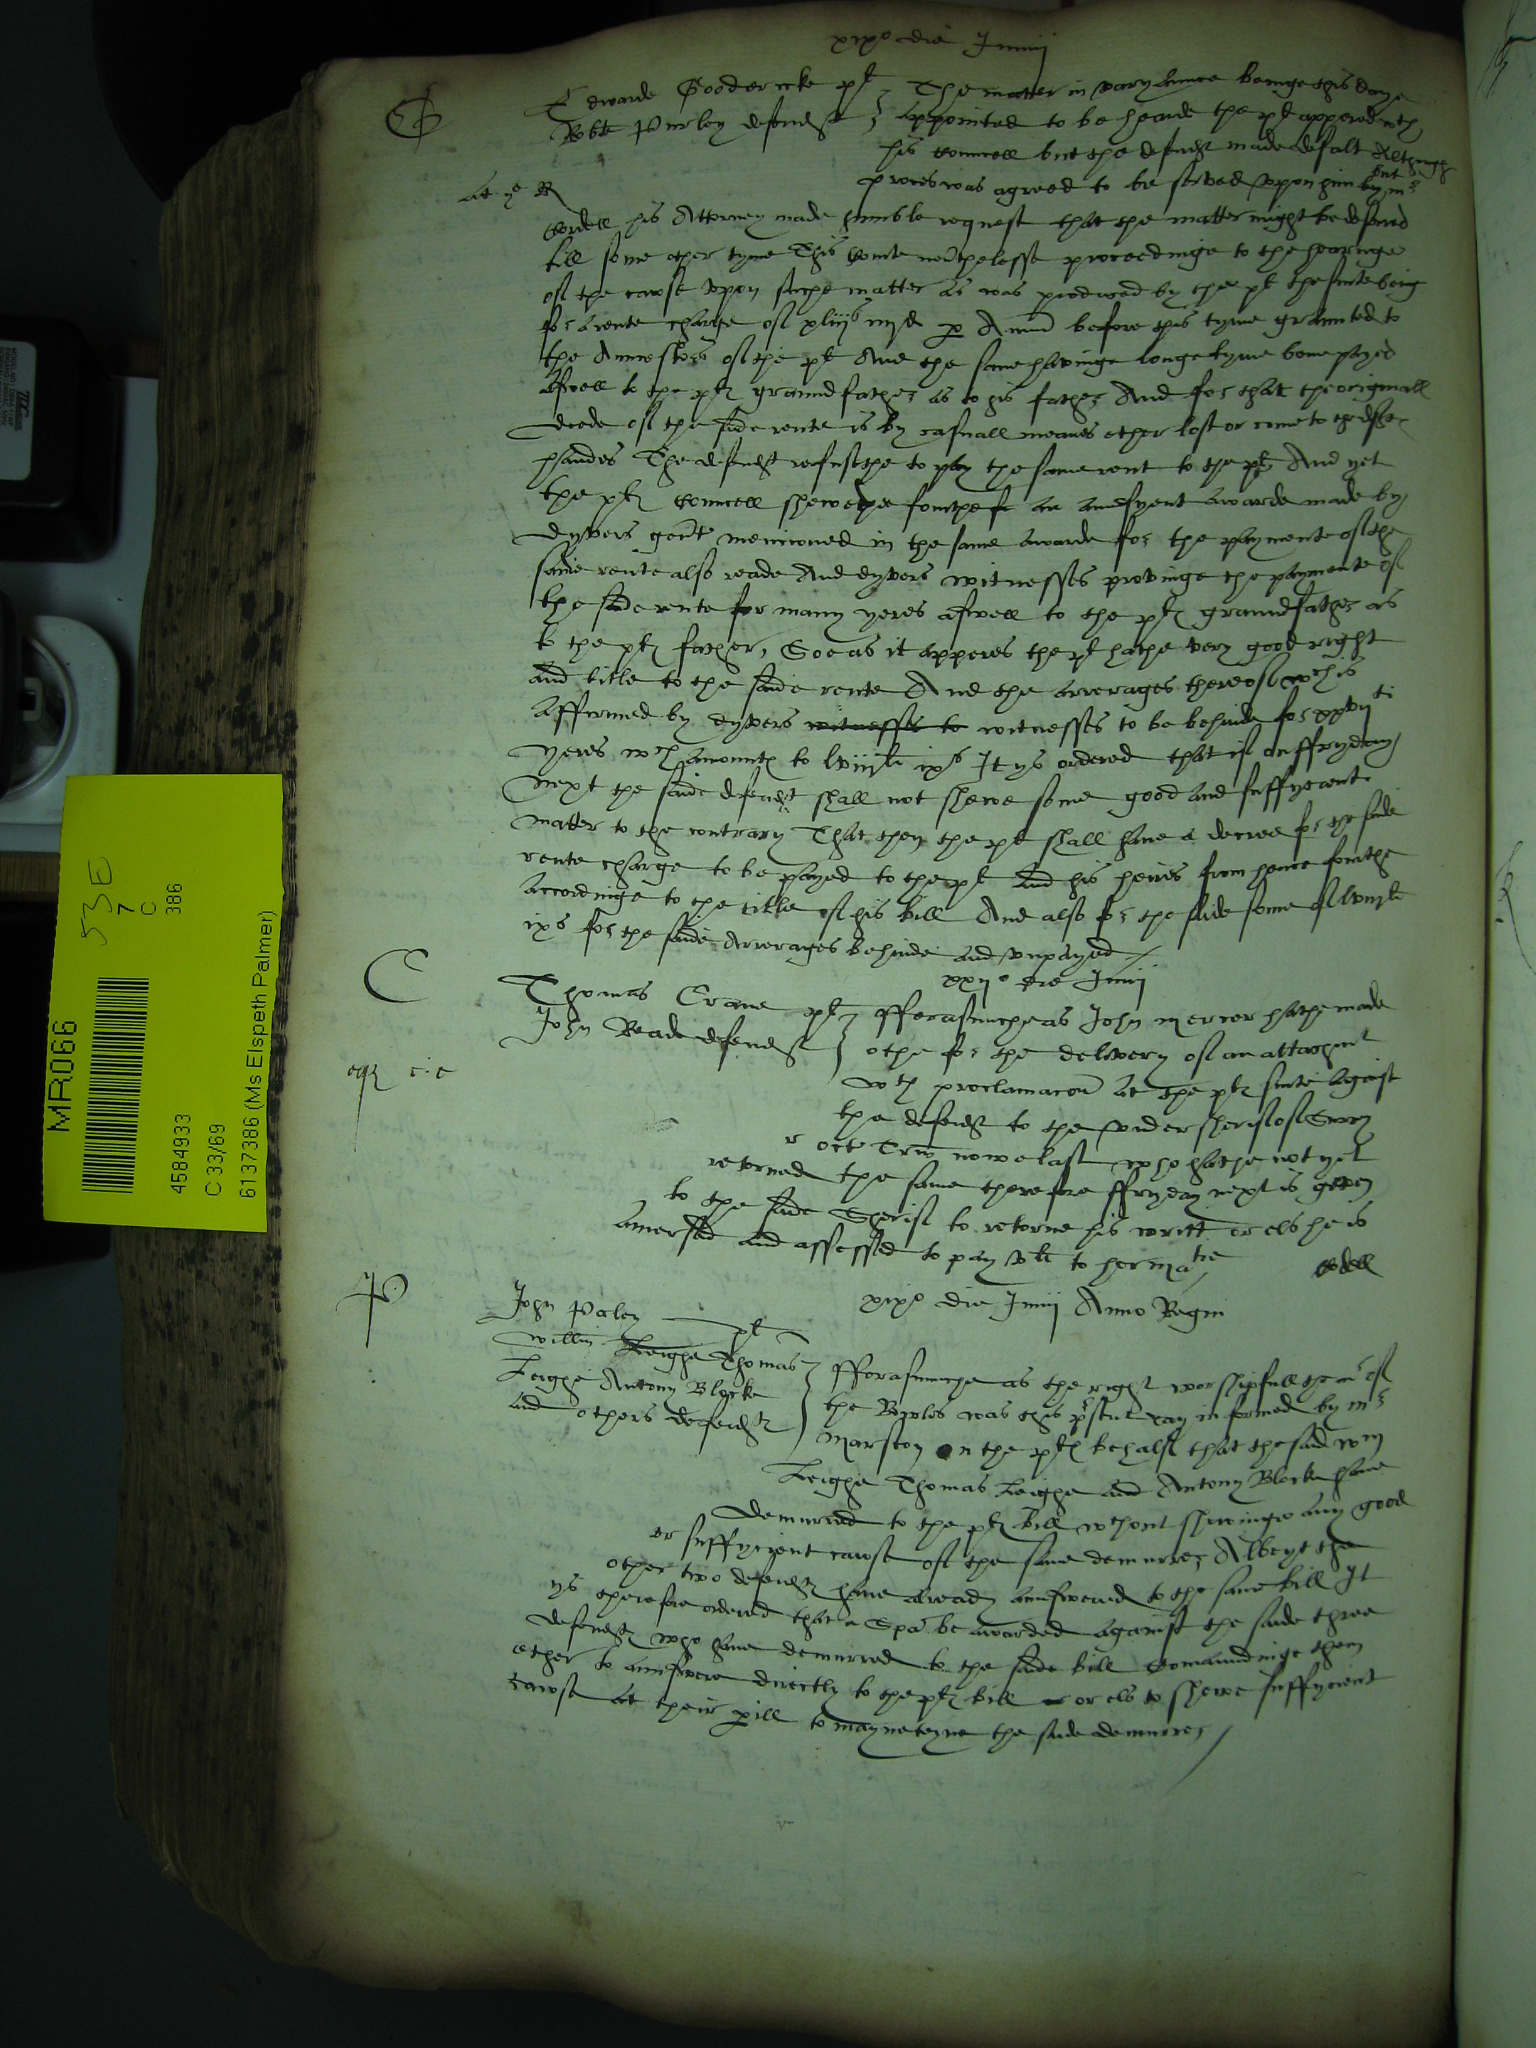 xixo die Junij
G
Edwarde Goodericke plt The matter in varyaunce beinge this daye
Robte Purley defendt appointed to be hearde the plt appered wth
his councell but the defendt made defalt Althoughe
proces was agreed to be served upon him but by mr
at ye R
Cordell his Attorney made humble request that the matter might be deferred
till some other tyme This Courte nevthelesse proceedinge to the hearinge
of the cawse upon suche matter as was produced by the plt the sute being
for a rente charge of xliijs iiijd p Annu before this tyme graunted to
the Auncestors of the plt And the same havinge longe tyme bene payed
aswell to the pltes graundfather as to his father And for that the originall
deede of the saide rente is by casuall meanes ether lost or come to the defte
handes The defendt refusethe to pay the same rent to the plt And yet
the pltes councell shewethe fourthe an auncyent awarde made by
dyvers gent mencioned in the same awarde for the paymente of the
same rente also reade And dyvers witnesses provinge the paymente of
the saide rente for many yeres aswell to the pltes graundfather as
to the pltes father, Soe as it apperes the plt hathe very good right
and title to the saide rente And the arrerages thereof wch is
affirmed by dyvers witnesses to witnesses to be behinde for xxvijti
yeres wch amountes to lviijli ixs It ys ordered that if on ffrydaye
next the saide defendt shall not shewe some good and suffycient
matter to the contrary That then the plt shall have a decree for the saide
rente charge to be payed to the plt And his heires from hence fourthe
accordinge to the title of his bill And also for the saide some of lviijli
ixs for the saide Arrerages behinde and unpayed
xxijo die Junij
C
Thomas Crane plt fforasmuche as John mercer hathe made
John Reade defendt othe for the delivery of an attachmt
wth proclamacon at the pltes sute against
the defendt to the under sherif of Surry
r oct Trin nowe last who hathe not yet
retorned the same therefore ffryday next is geven
to the saide Sherif to retorne his writt or els he is
amersed and assessed to pay vli to her matie
Cordell
xixo die Junij Anno Regni
P
John Paley plt
Willm Leighe Thomas fforasmuche as the right worshipfull the mr of
Leighe Antony Blocke the Rowles was this psent day informed by mr
and others defendtes marston on the pltes behalf that the said wm
Leighe Thomas Leighe and Antony Blocke have
demurred to the pltes bill wthout shewinge any good
or suffycient cawse of the same demurrer Albeyt the
other two defendtes have already aunswered to the same bill It
ys therefore ordered that a Spa be awarded against the saide three
defendtes who have demurred to the saide bill Comaundinge them
ether to aunswere directly to the pltes bill or els to shewe suffycient
cawse at their pill to mayneteyne the saide demurrer
MR066
53 E
7
C
386
45884933
C 33/69
6137386 (Ms Elspeth Palmer)